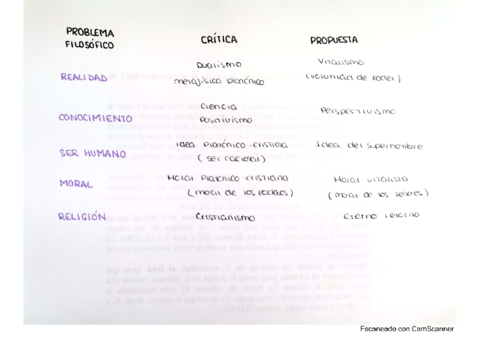 PROBLEMA FILOSÓFICO CRÍTICA PROPUESTA
Dualismo Vitalismo
REALIDAD metafísica platónica (voluntad de poder)
Ciencia Perspectivismo
CONOCIMIENTO Positivismo
Idea platónico-cristiana Idea del superhombre
SER HUMANO (ser racional)
Moral platónico cristiana Moral vitalista
MORAL (moral de los esclavos) (moral de los señores)
RELIGIÓN Cristianismo Eterno retorno
Escaneado con CamScanner